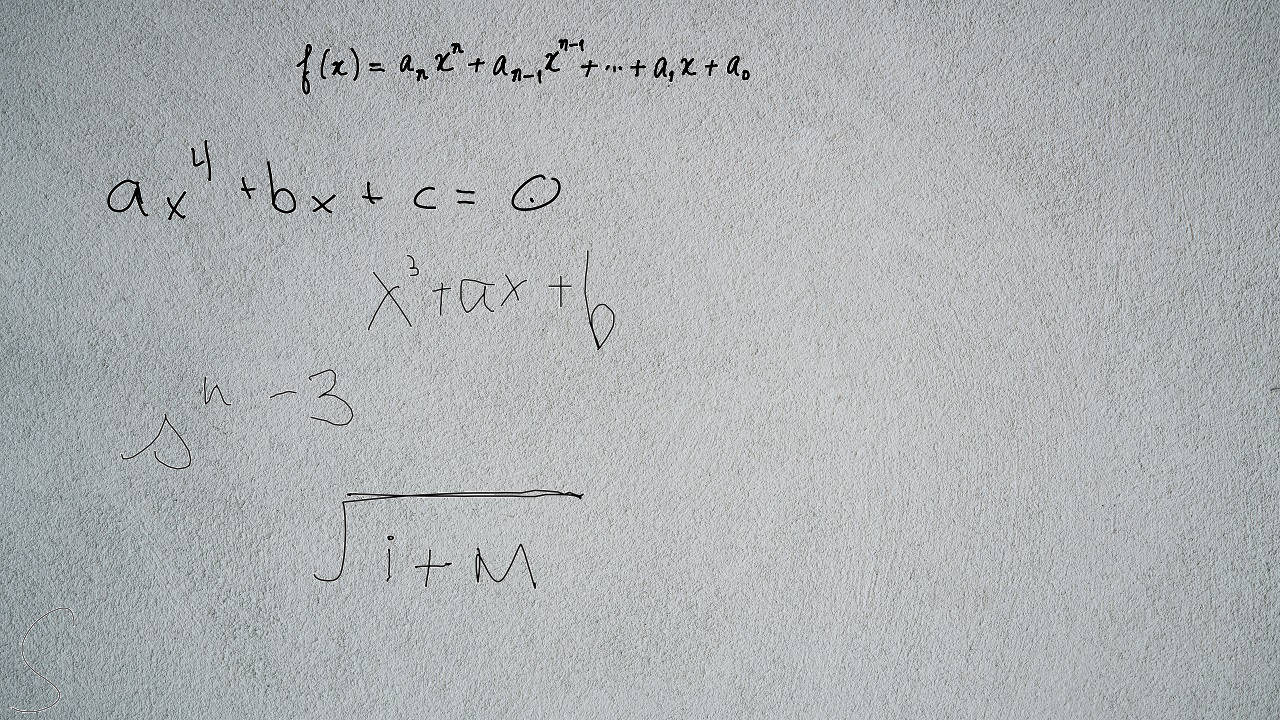 f(x) = aₙxⁿ + aₙ₋₁xⁿ⁻¹ + ... + a₁x + a₀
ax⁴ + bx + c = 0
x³ + ax + b
sⁿ - 3
√(i + M)
S